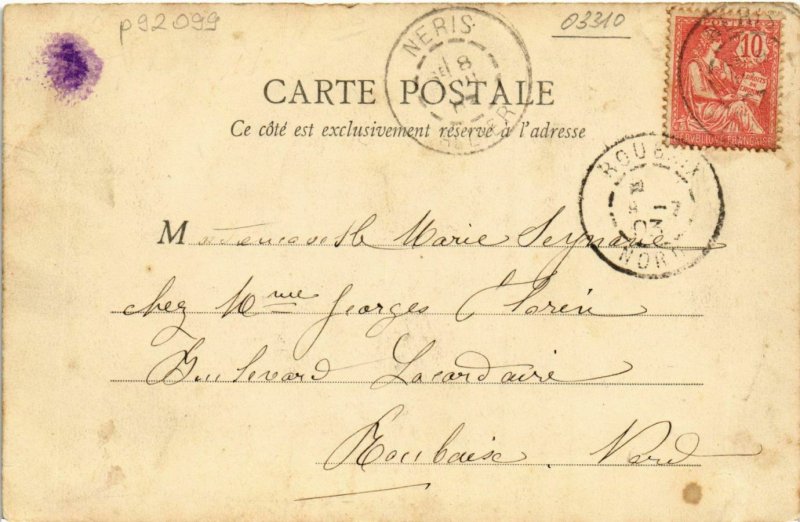 p92099
03310
NERIS
ALLIER
POSTES
10
CARTE POSTALE
Ce côté est exclusivement réservé à l'adresse
ROUBAIX
03
NORD
Mademoiselle Marie
chez Mme Georges Florin
Boulevard Lacordaire
Roubaix. Nord